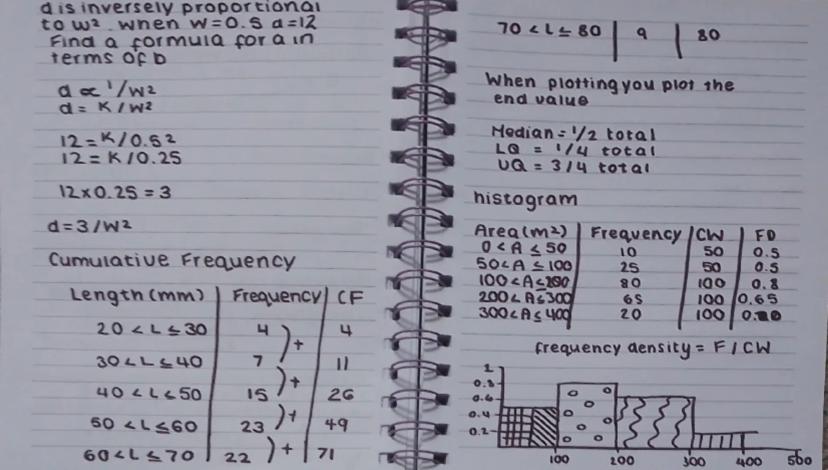 d is inversely proportional
to w². when w=0.5 d=12
Find a formula for d in
terms of b
d ∝ 1/w²
d = K/w²
12 = K/0.5²
12 = K/0.25
12 x 0.25 = 3
d = 3/w²
Cumulative Frequency
Length (mm) Frequency CF
20 < L ≤ 30 4 4
30 < L ≤ 40 7 11
40 < L ≤ 50 15 26
50 < L ≤ 60 23 49
60 < L ≤ 70 22 71
+
+
+
+
70 < L ≤ 80 9 80
When plotting you plot the
end value
Median = 1/2 total
LQ = 1/4 total
UQ = 3/4 total
histogram
Area (m²) Frequency CW FD
0 < A ≤ 50 10 50 0.5
50 < A ≤ 100 25 50 0.5
100 < A ≤ 200 80 100 0.8
200 < A ≤ 300 65 100 0.65
300 < A ≤ 400 20 100
frequency density = F / CW
1
0.8
0.6
0.4
0.2
100 200 300 400 500